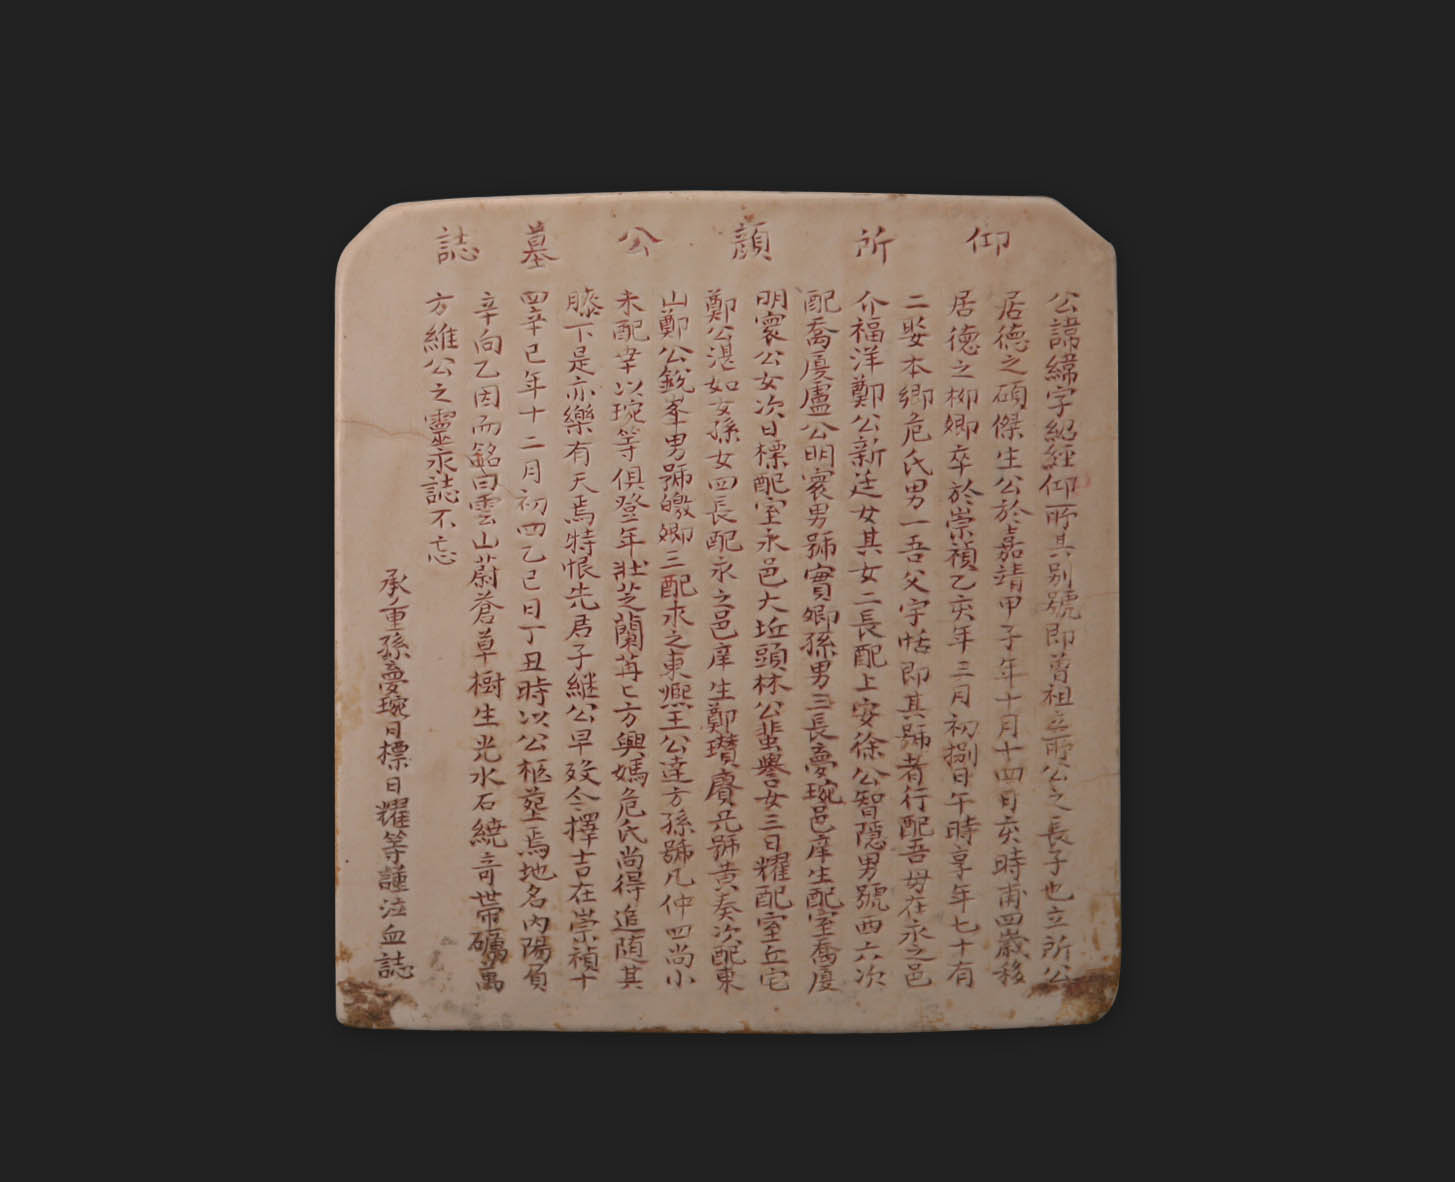 仰所顏公墓誌
公諱緯字紹經仰所其别號即曾祖立所公之長子也立所公
居德之碩傑生公於嘉靖甲子年十月十四日亥時甫四歲移
居德之柳鄉卒於崇禎乙亥年三月初捌日午時享年七十有
二娶本鄉危氏男一吾父字恬即其號者行配吾母在永之邑
介福洋鄭公新廷女其女二長配上安徐公智隱男號西六次
配喬廈盧公明寰男號實卿孫男三長夢琬邑庠生配室喬廈
明寰公女次日標配室永邑大坵頭林公蜚譽女三日耀配室丘宅
鄭公湛如女孫女四長配永之邑庠生鄭瓚賡兄號黄奏次配東
山鄭公銳峯男號皦卿三配永之東熈王公達方孫號凡仲四尚小
未配幸以琬等俱登年壯芝蘭苒匕方興媽危氏尚得追随其
膝下是亦樂有天焉特恨先居子継公早殁今擇吉在崇禎十
四辛巳年十二月初四乙巳日丁丑時以公柩塟焉地名内陽負
辛向乙因而銘曰雲山蔚蒼草樹生光水石繞奇世帶礪萬
方維公之靈永誌不忘
承重孫夢琬日標日耀等謹泣血誌